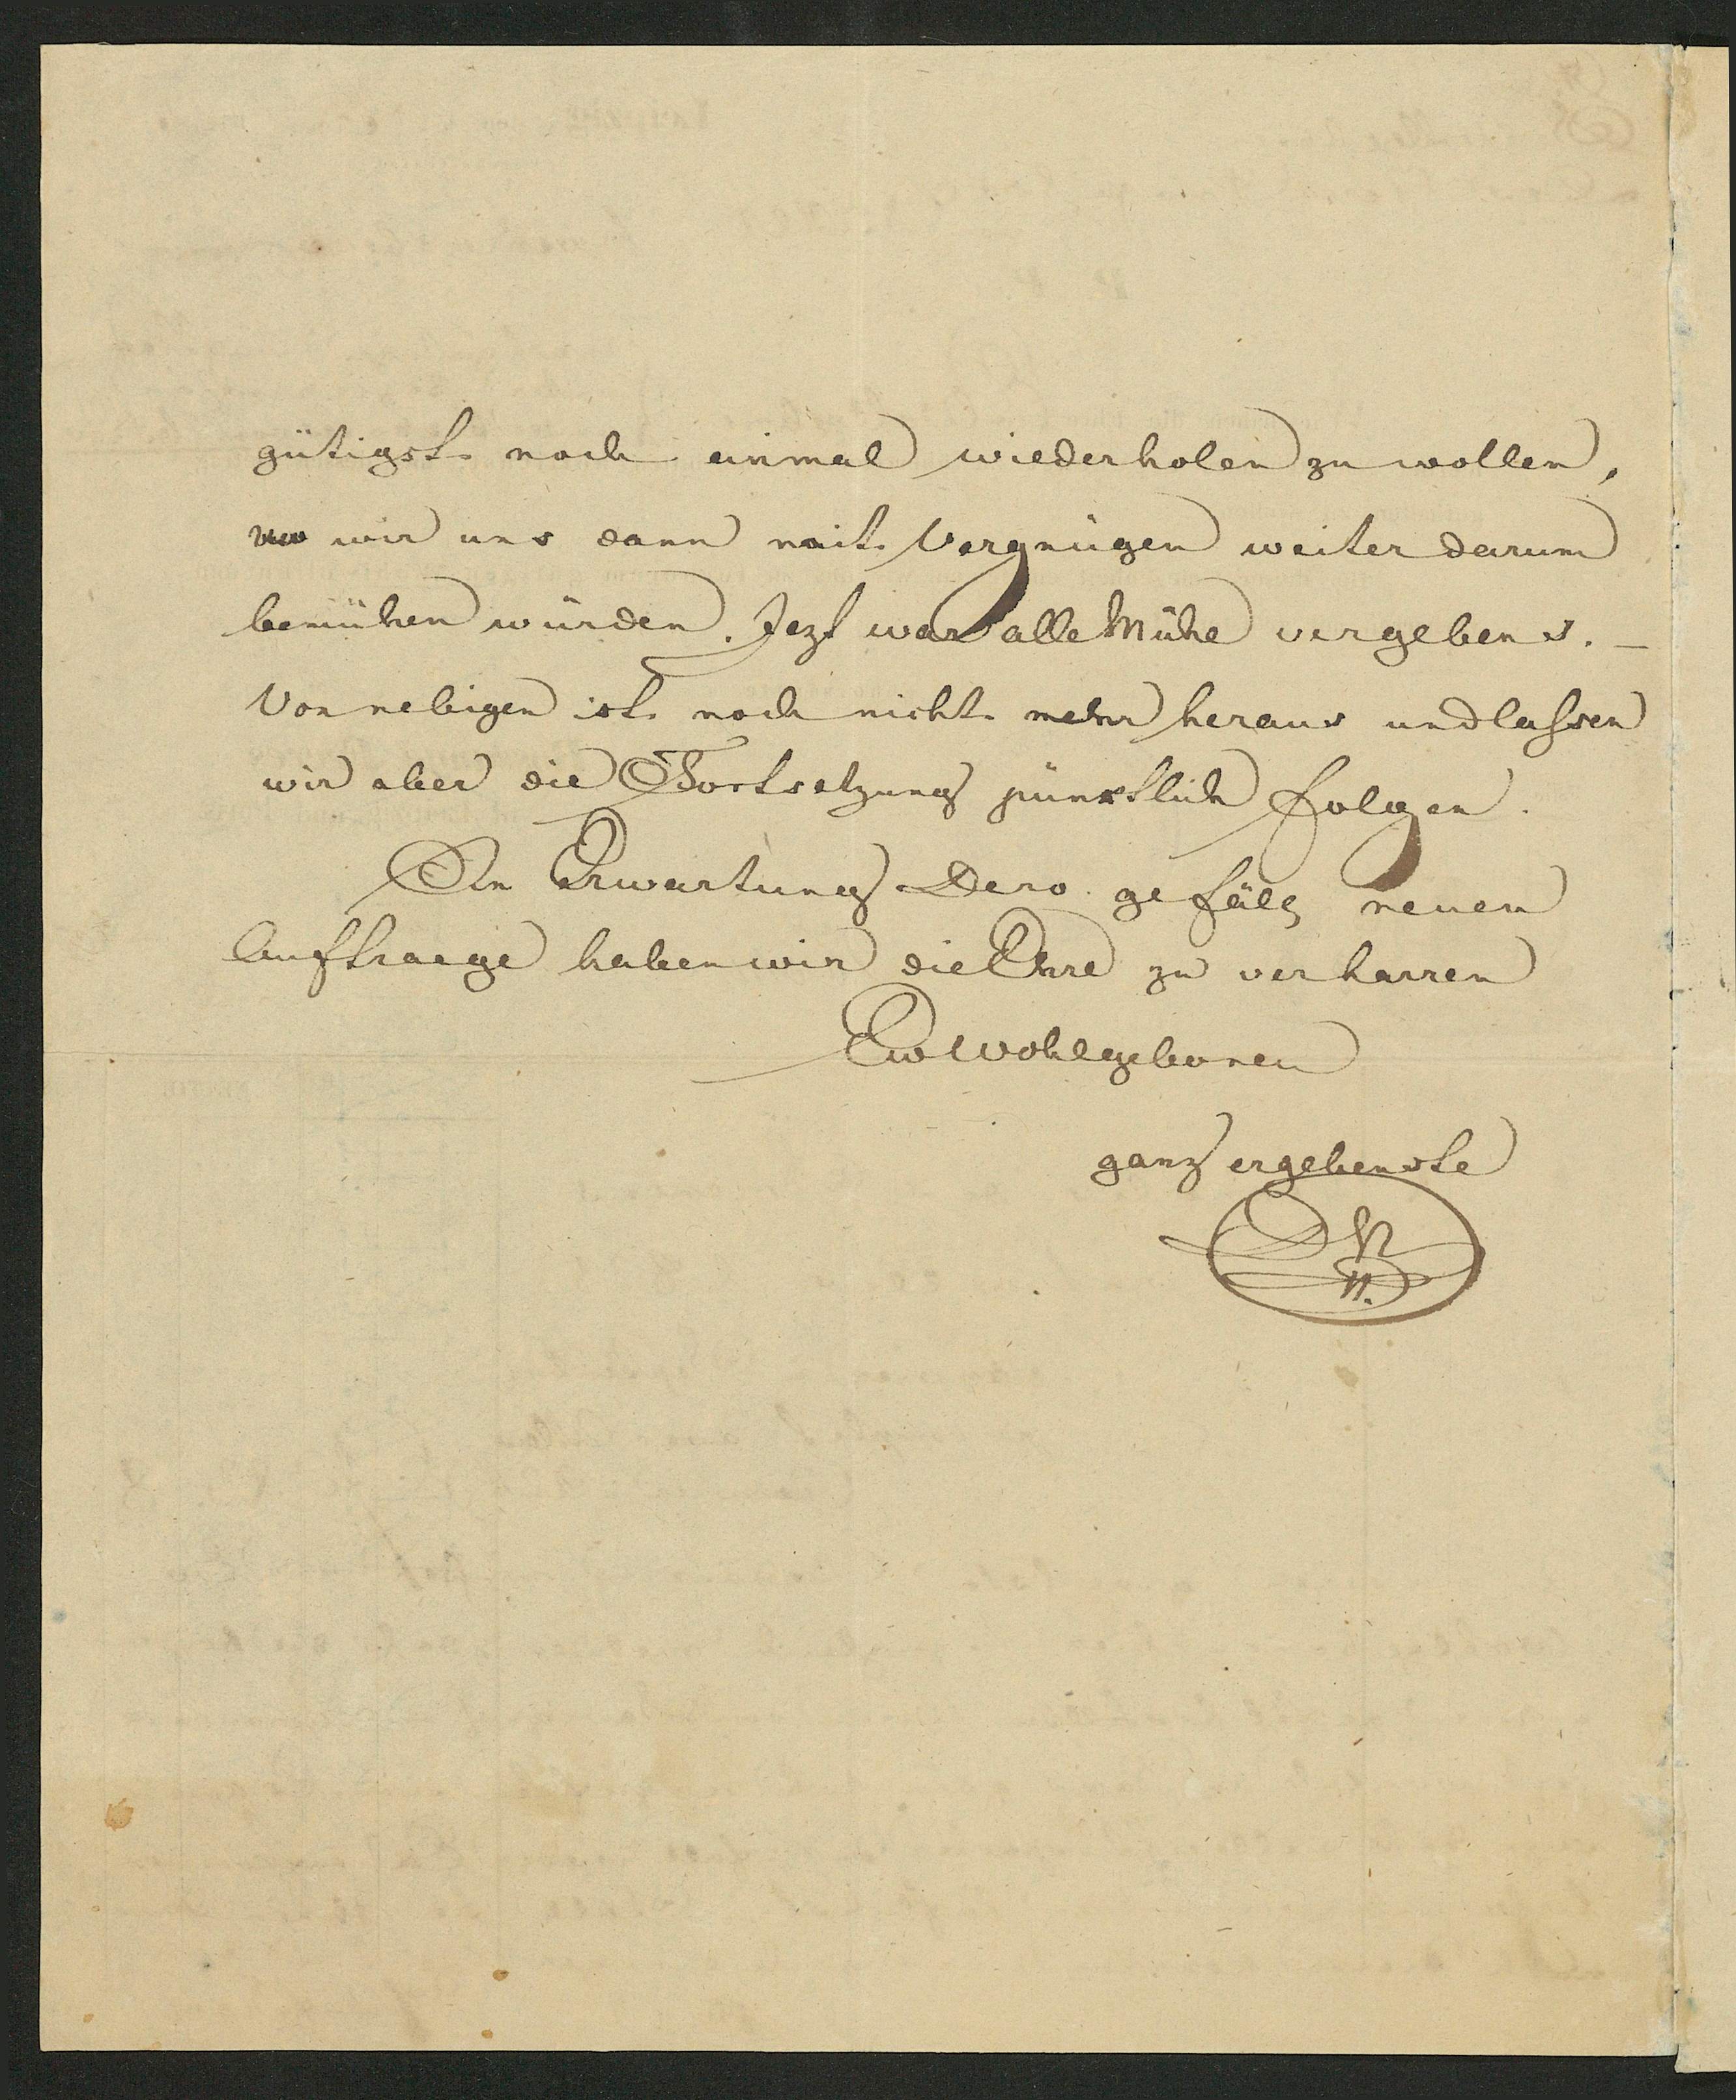 gütigst noch einmal wiederholen zu wollen,
wo wir uns dann mit Vergnügen weiter darum
bemühen würden. Jezt war alle Mühe vergebens. –
Von nebigen ist noch nicht mehr heraus und laßen
wir aber die Fortsetzung pünktlich folgen.
In Erwartung Dero gefällg neuen
Auftraege haben wir die Ehre zu verharren
Ew Wohlgeboren
ganz ergebenste